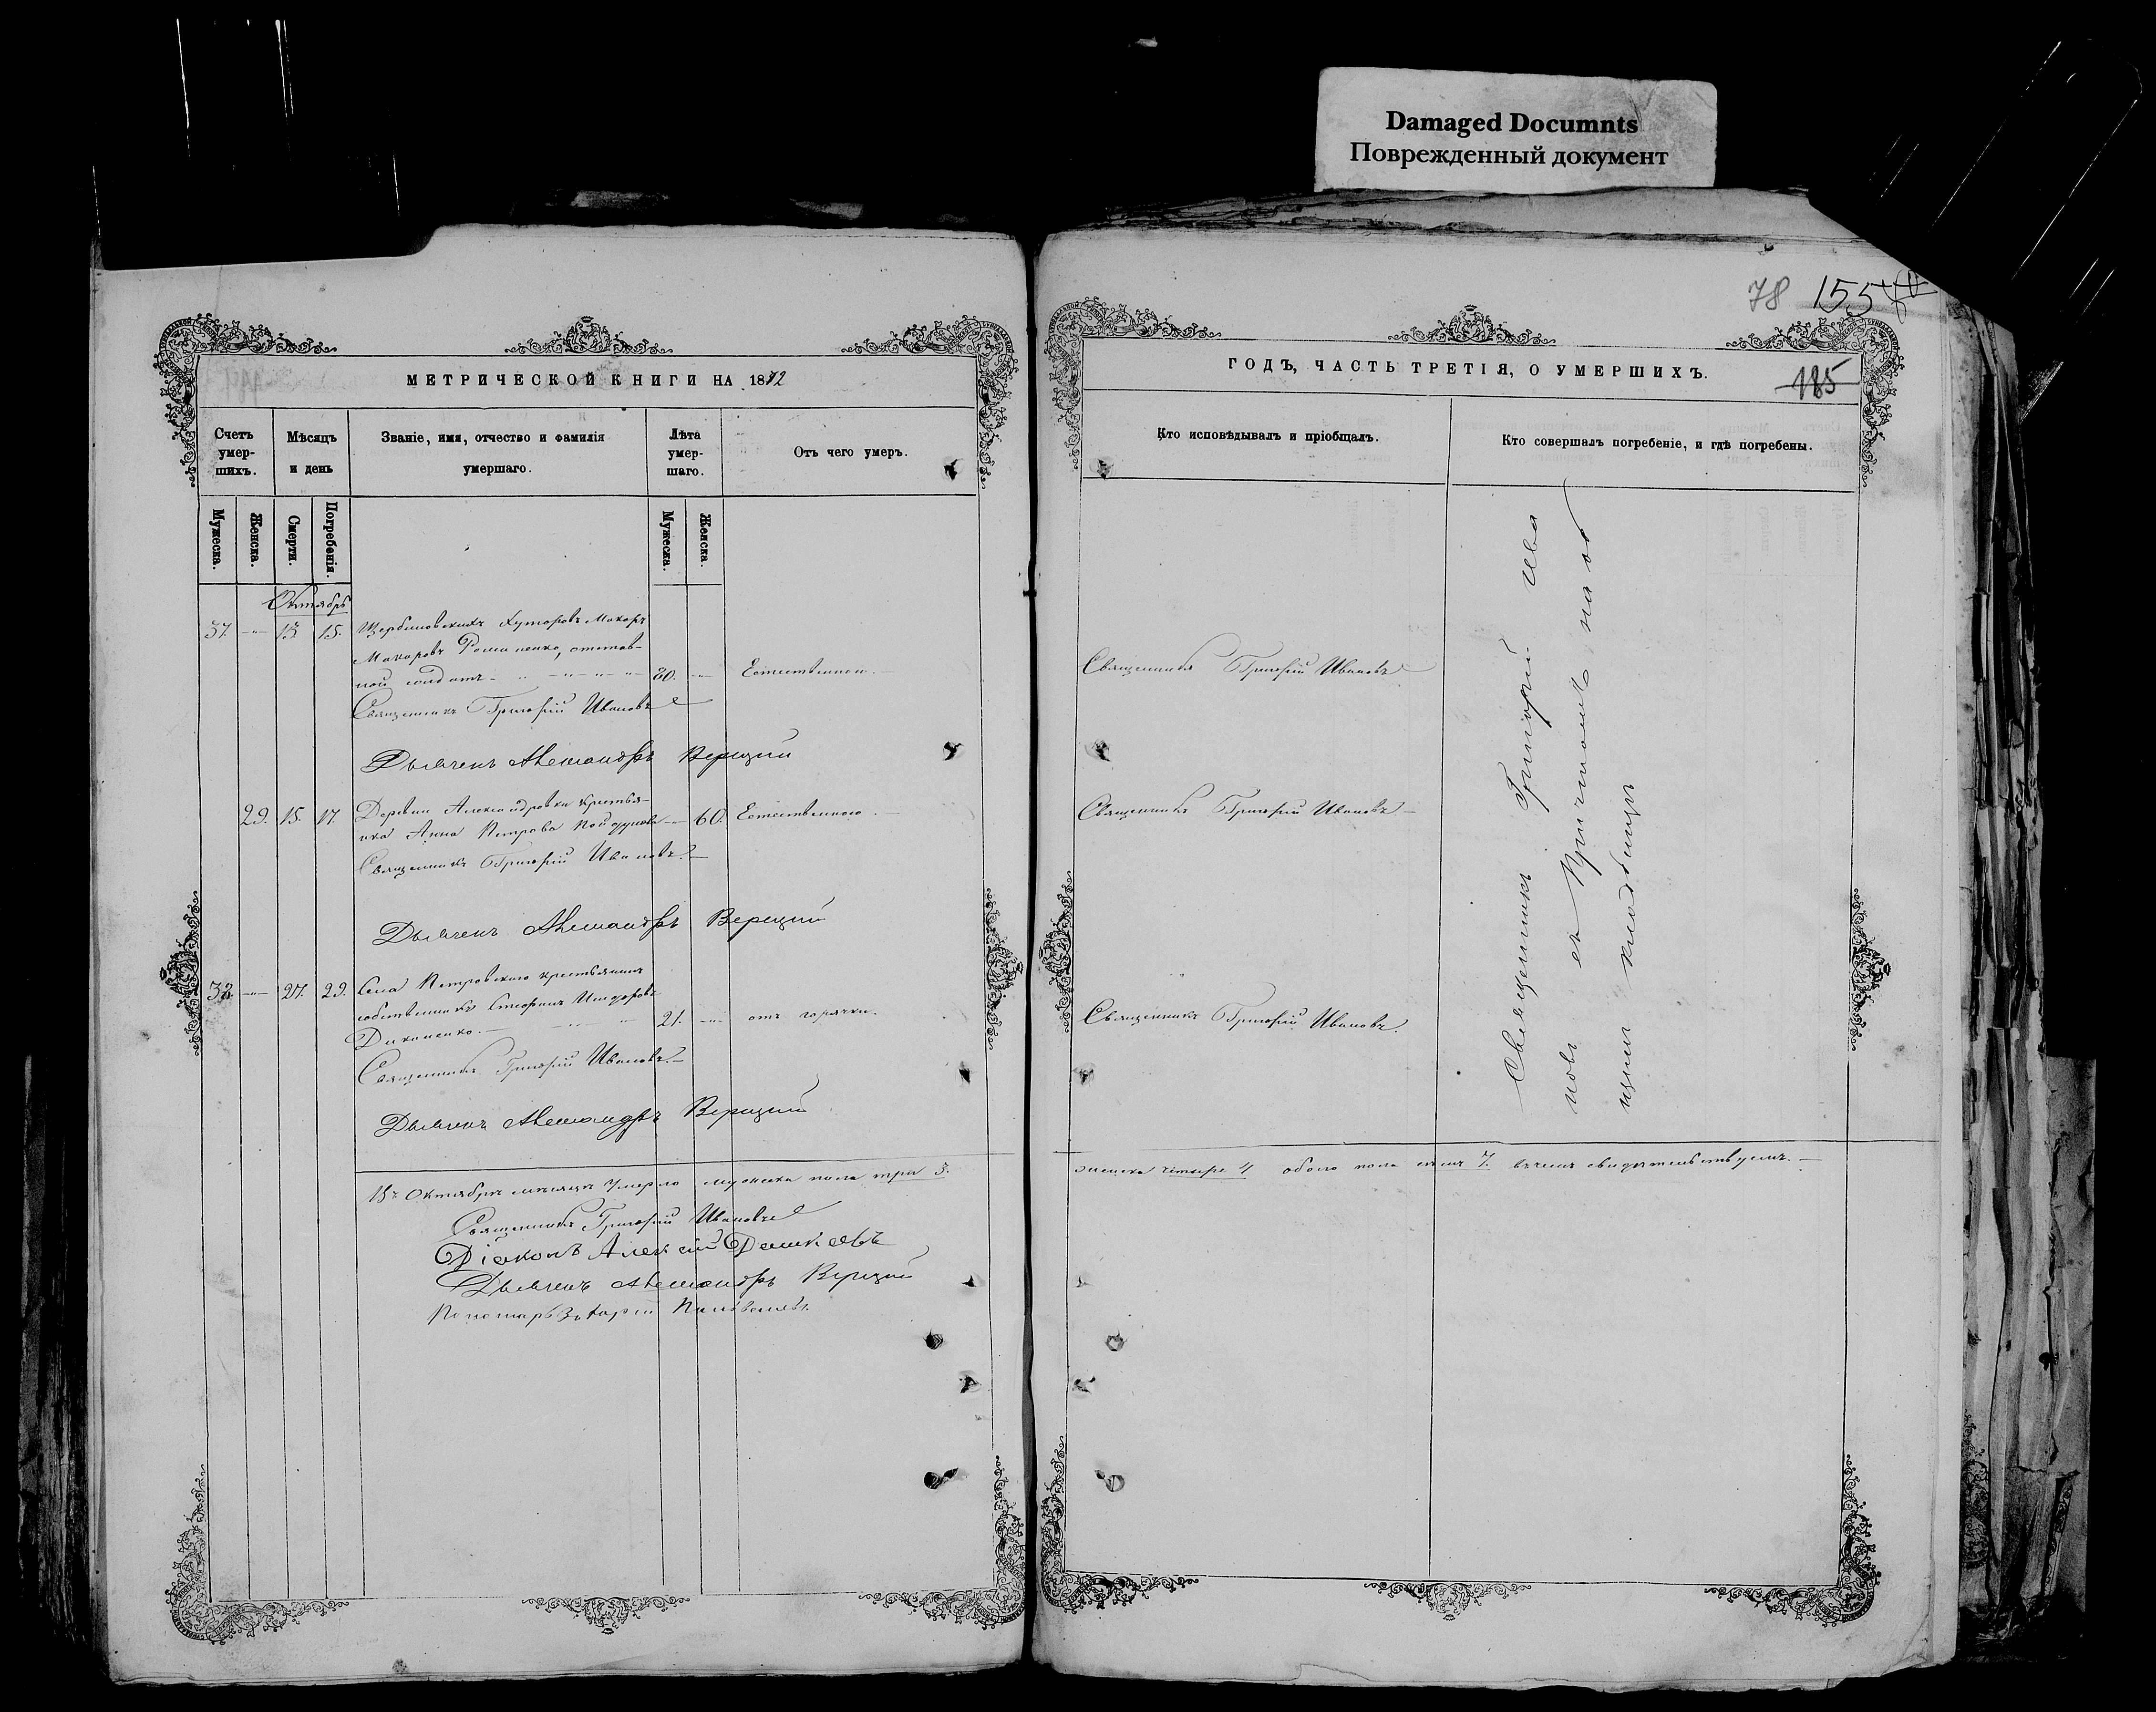 Damaged Documnts
Поврежденный документ
МЕТРИЧЕСКОЙ КНИГИ НА 1872
Счетъ умер-шихъ.
Мѣсяцъ и день
Званіе, имя, отчество и фамилія умершаго.
Лѣта умер-шаго.
Отъ чего умеръ.
Мужеска.
Женска.
Смерти.
Погребенія.
Мужеска.
Женска.
Октябрь
37. 13 15. Щербиновскихъ хуторовъ Макаръ
Макаровъ Романенко, отстав-
ной солдатъ 80. Естественною.
Священникъ Григорій Ивановъ
Дьячекъ Александръ Верецкій
29. 15. 17. Деревни Александровки крестья-
нка Анна Петрова 60. Естественною.
Священникъ Григорій Ивановъ.
Дьячекъ Александръ Верецкій
38 27. 29. Села Петровскаго крестьянинъ
собственникъ Стефанъ
Диканенко. 21. отъ горячки.
Священникъ Григорій Ивановъ.
Дьячекъ Александръ Верецкій
Въ Октябрѣ мѣсяцѣ умерло мужеска пола три 3.
Священникъ Григорій Ивановъ
Діаконъ Алексій
Дьячекъ Александръ Верецкій
Пономарь Захарій
78 155
ГОДЪ, ЧАСТЬ ТРЕТІЯ, О УМЕРШИХЪ.
185
Кто исповѣдывалъ и пріобщалъ.
Кто совершалъ погребеніе, и гдѣ погребены.
Священникъ Григорій Ивановъ
Священникъ Григорій Ивановъ
Священникъ Григорій Ивановъ.
Священникъ Григорій Ива
новъ съ Причтомъ на об
щемъ кладбищѣ
женска четыре 4 обоего пола семь 7. въ чемъ свидѣтельствуемъ.